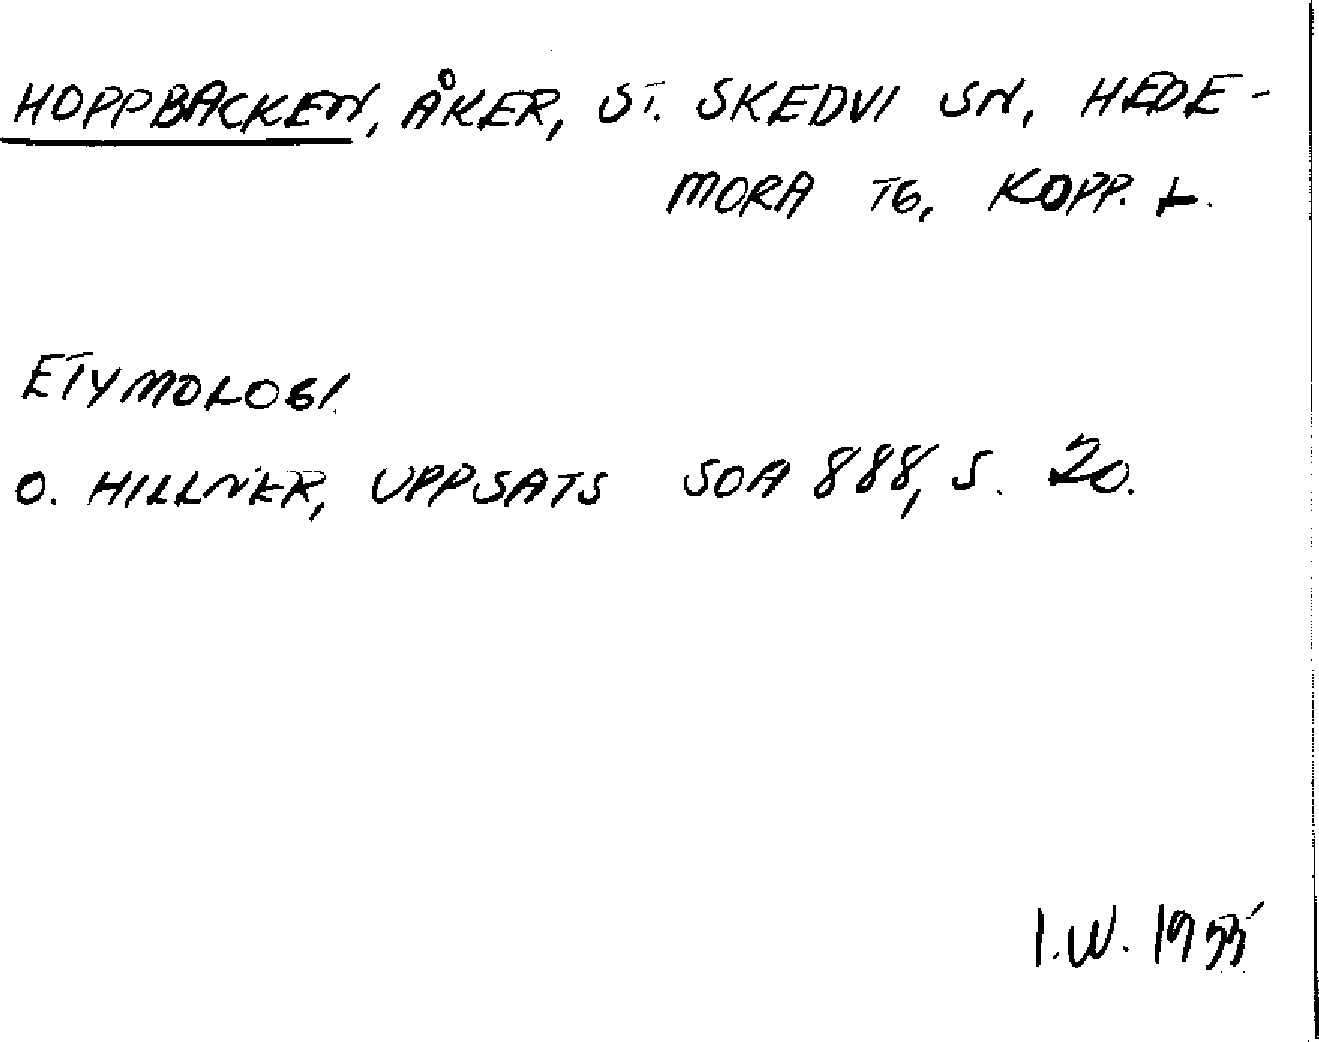 HOPPBACKEN, ÅKER, ST. SKEDVI SN, HEDE-
MORA TG, KOPP. L.
ETYMOLOGI
O. HILLNER, UPPSATS SOA 888, S. 20.
I.W. 1955